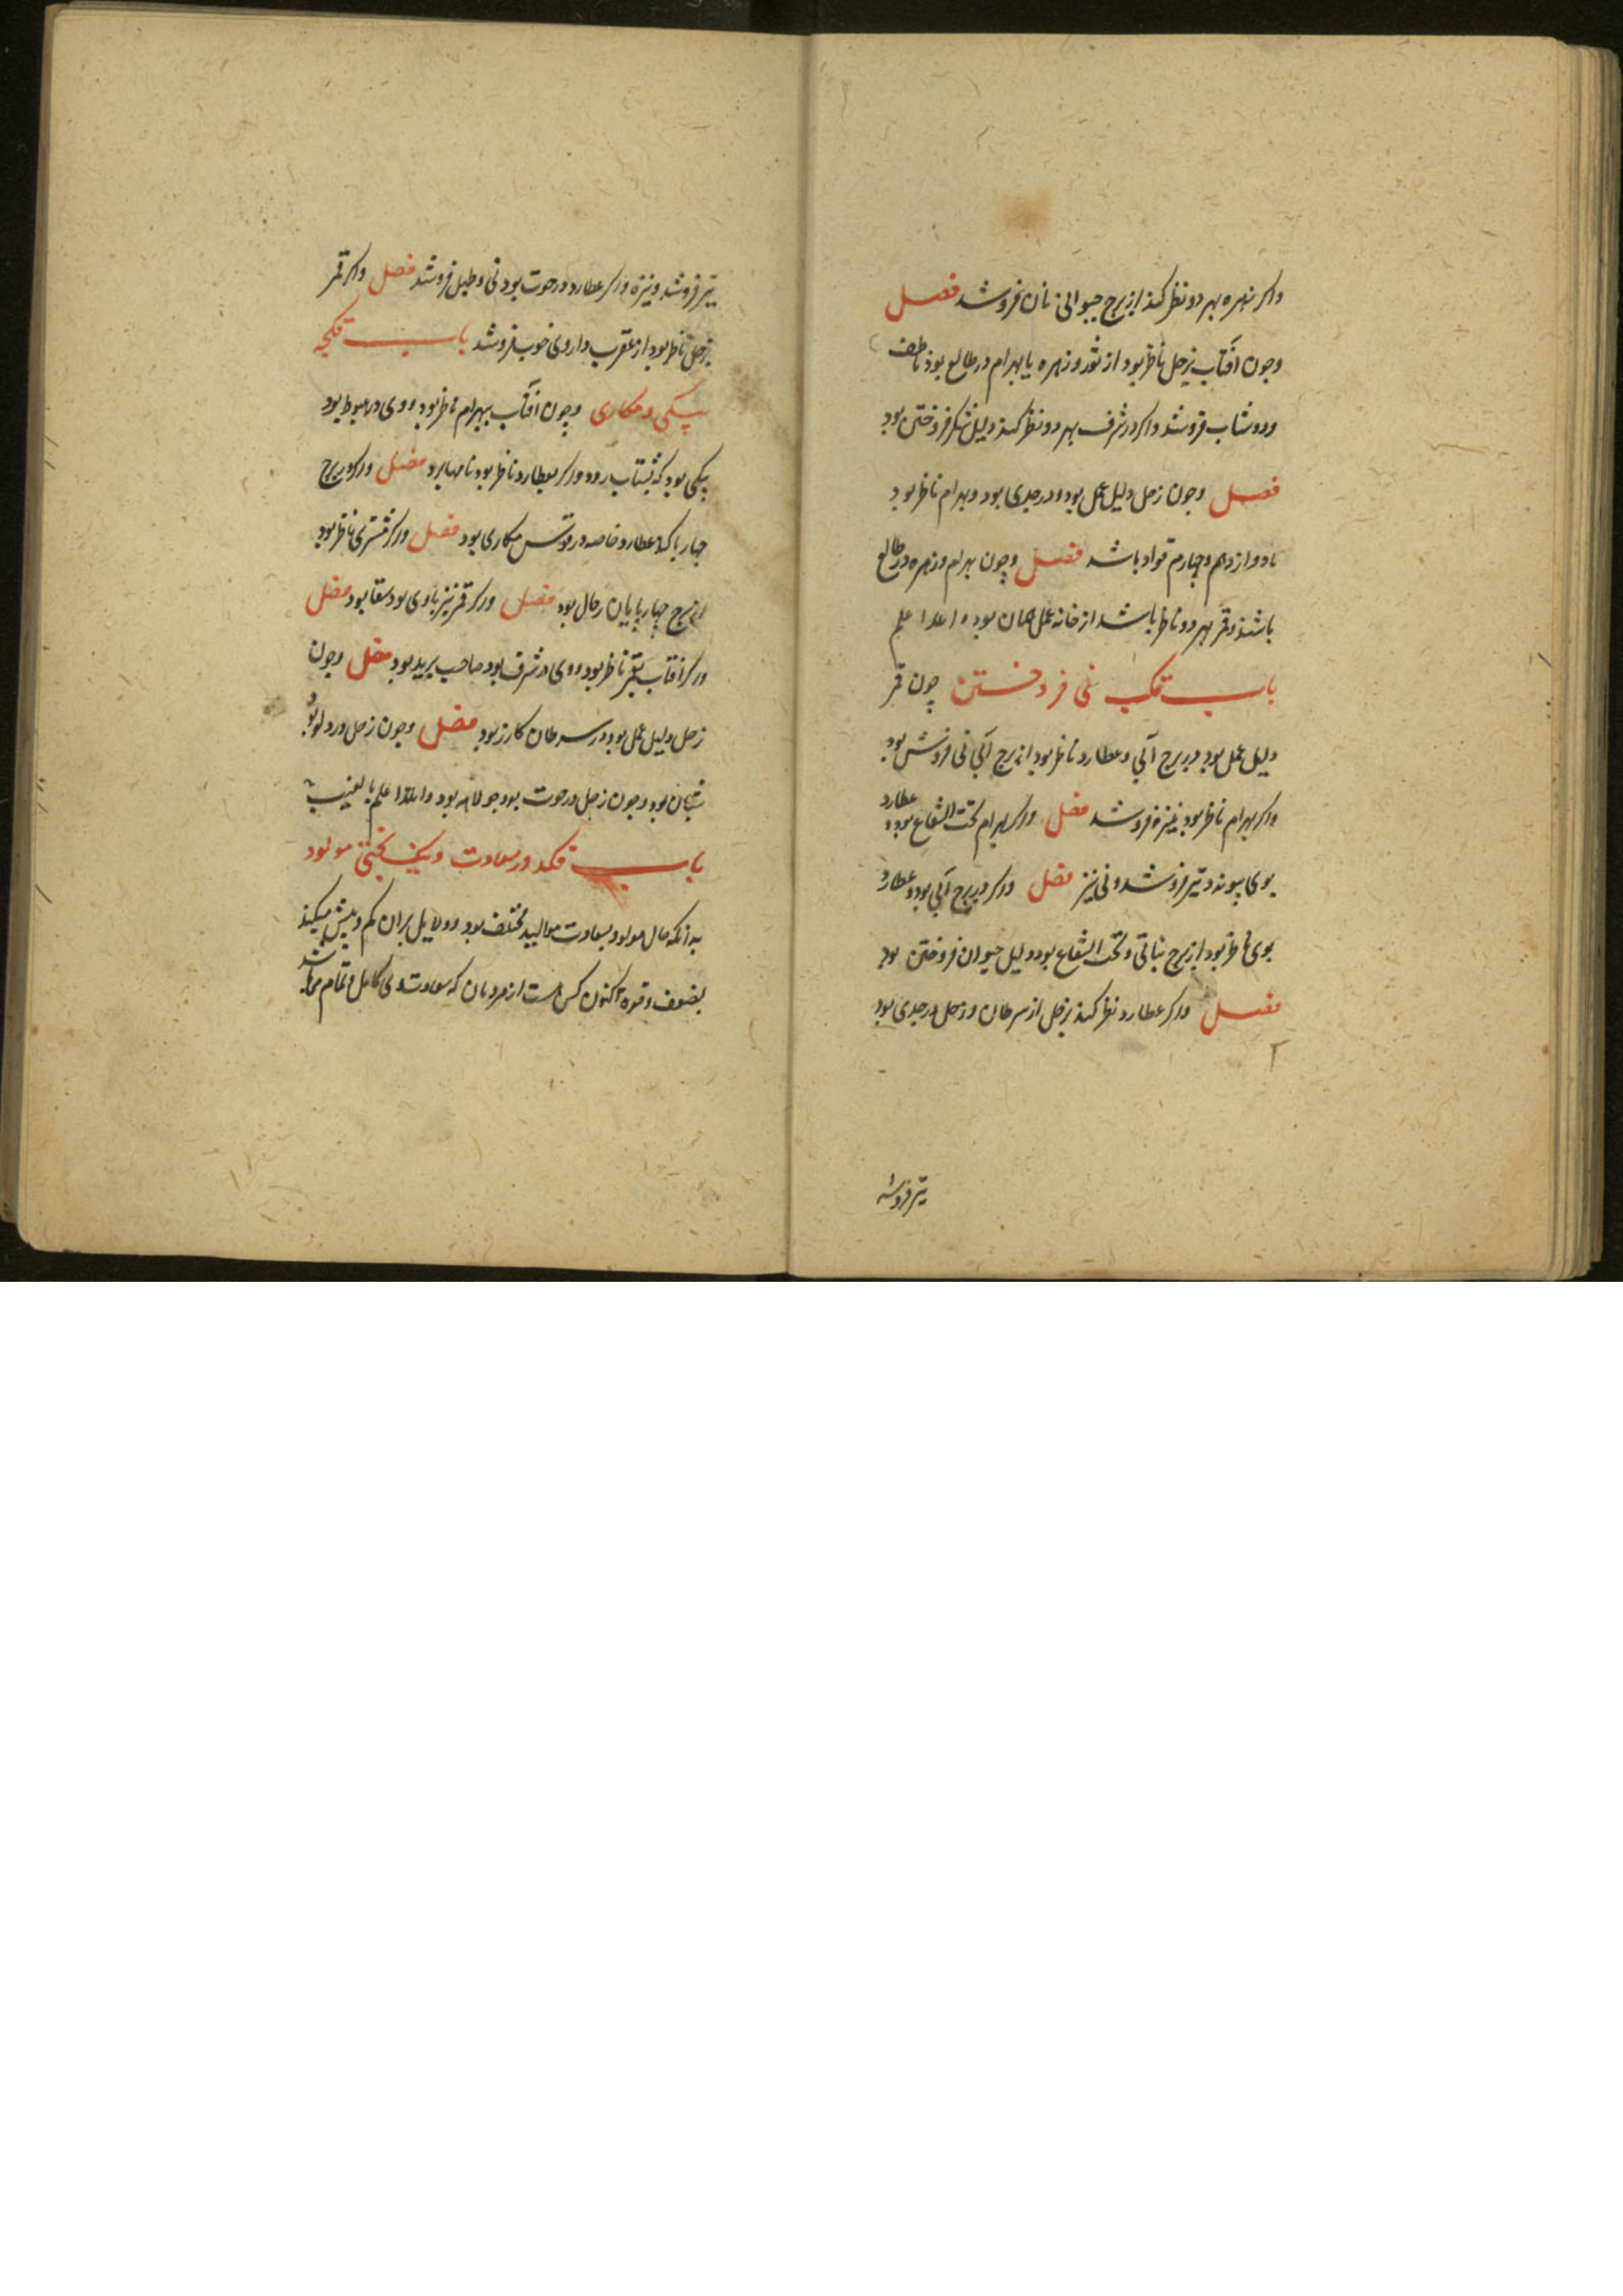 واکر زهره بهر دو نظر کند از برج حیوانی نان فروشد فصل
وجون آفتاب بزحل ناظر بود از ثور و زهره یا بهرام در طالع بود ناطف
ودوشاب فروشد واکر در شرف بهر دو نظر کند دلیل شکر فروختن بود
فصل وجون زحل دلیل عمل بود و در جدی بود و بهرام ناظر بود
تا دوازدهم وچهارم قواد باشد فصل وچون بهرام و زهره در طالع
باشند و قمر بهر دو ناظر باشد از خانه عمل همان بود و الله اعلم
باب قکب نی فروختن چون قمر
دلیل عمل بود در برج آبی و عطارد ناظر بود از برج آبی نی فروش بود
واکر بهرام ناظر بود نیزه فروشد فصل واکر بهرام تحت الشعاع بود و عطارد
بوی پیوندد تیر فروشد ونی نیز فصل واکر در برج آبی بود و عطارد
بوی ناظر بود از برج نباتی و تحت الشعاع بود دلیل حیوان فروختن بود
فصل واکر عطارد نظر کند بزحل از سرطان و زحل در جدی بود
۲
تیر فروشد
تیر فروشد و نیزه واکر عطارد در حوت بود نی و طبل فروشد فصل واکر قمر
بزحل ناظر بود از عقرب داروی خوب فروشد باب قکجه
پیکی و مکاری وچون آفتاب بهرام ناظر بود ووی در هبوط بود
پیکی بود که بشتاب رود ور کر بعطارد ناظر بود نامها برد فصل ور کر در برج
چهار پا کند عطارد خاصه در قوس مکاری بود فصل ور کر مشتری ناظر بود
از برج چهار پایان رحال بود فصل ور کر قمر نیز باوی بود سقا بود فصل
ور کر آفتاب بقمر ناظر بود ووی در شرف بود صاحب برید بود فصل وچون
زحل دلیل عمل بود در سرطان کازر بود فصل وچون زحل در دلو بود
شبان بود وچون زحل در حوت بود جولاهه بود والله اعلم بالغیب
باب قکد در سعادت و نیک بختی مولود
بدانکه حال مولود بسعادت موالید مختلف بود ودلایل بران کم و بیش میکند
بضعف وقوة اکنون کس هست از مردمان که سعادت وی کامل و تمام میباشد